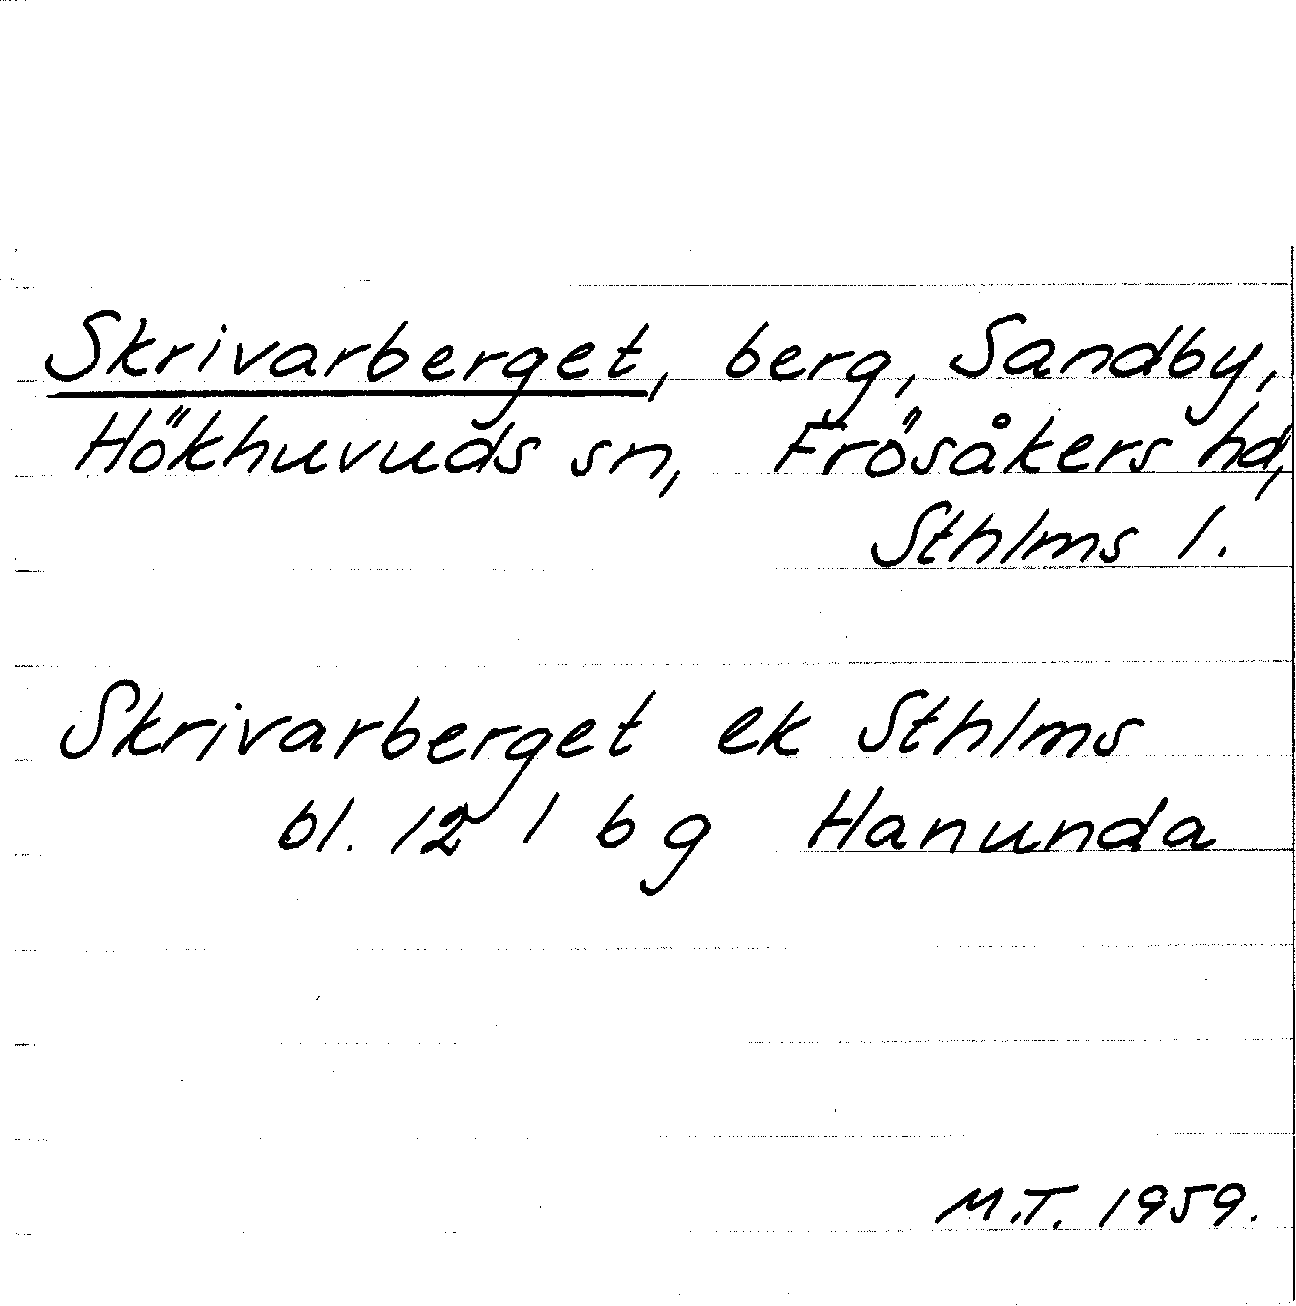 Skrivarberget, berg, Sandby,
Hökhuvuds sn, Frösåkers hd,
Sthlms l.
Skrivarberget ek Sthlms
bl. 12 1 b g Hanunda
M.T. 1959.